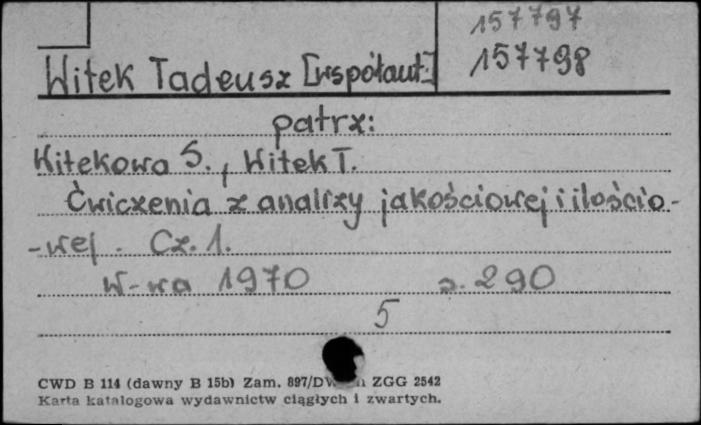 157797
Witek Tadeusz [współaut.]
157798
patrz:
Witekowa S., Witek T.
Ćwiczenia z analizy jakościowej i ilościo-
-wej. Cz. 1.
W-wa 1970 s. 290
5
CWD B 114 (dawny B 15b) Zam. 897/ ZGG 2542
Karta katalogowa wydawnictw ciągłych i zwartych.